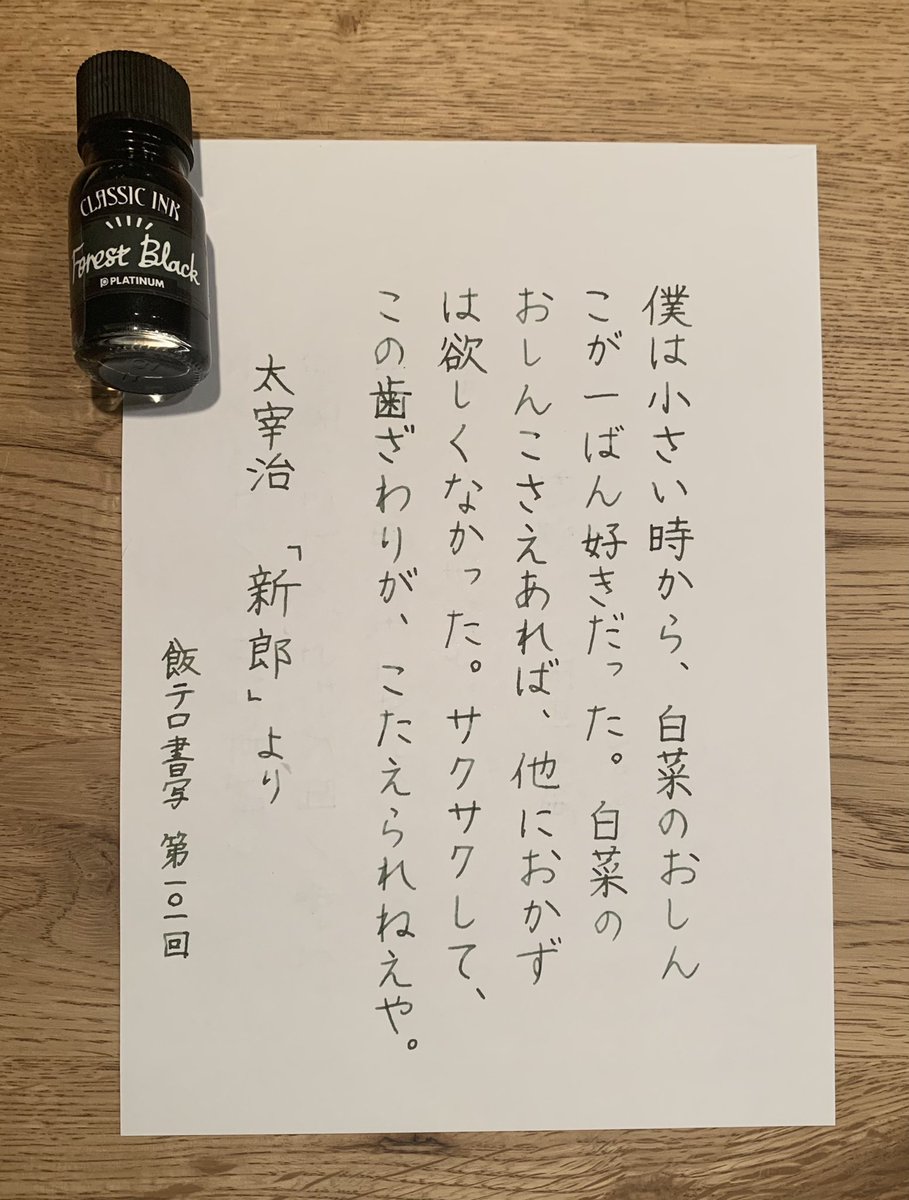 CLASSIC INK
Forest Black
PLATINUM
僕は小さい時から、白菜のおしん
こが一ばん好きだった。白菜の
おしんこさえあれば、他におかず
は欲しくなかった。サクサクして、
この歯ざわりが、こたえられねえや。
太宰治 「新郎」より
飯テロ書写 第一〇一回